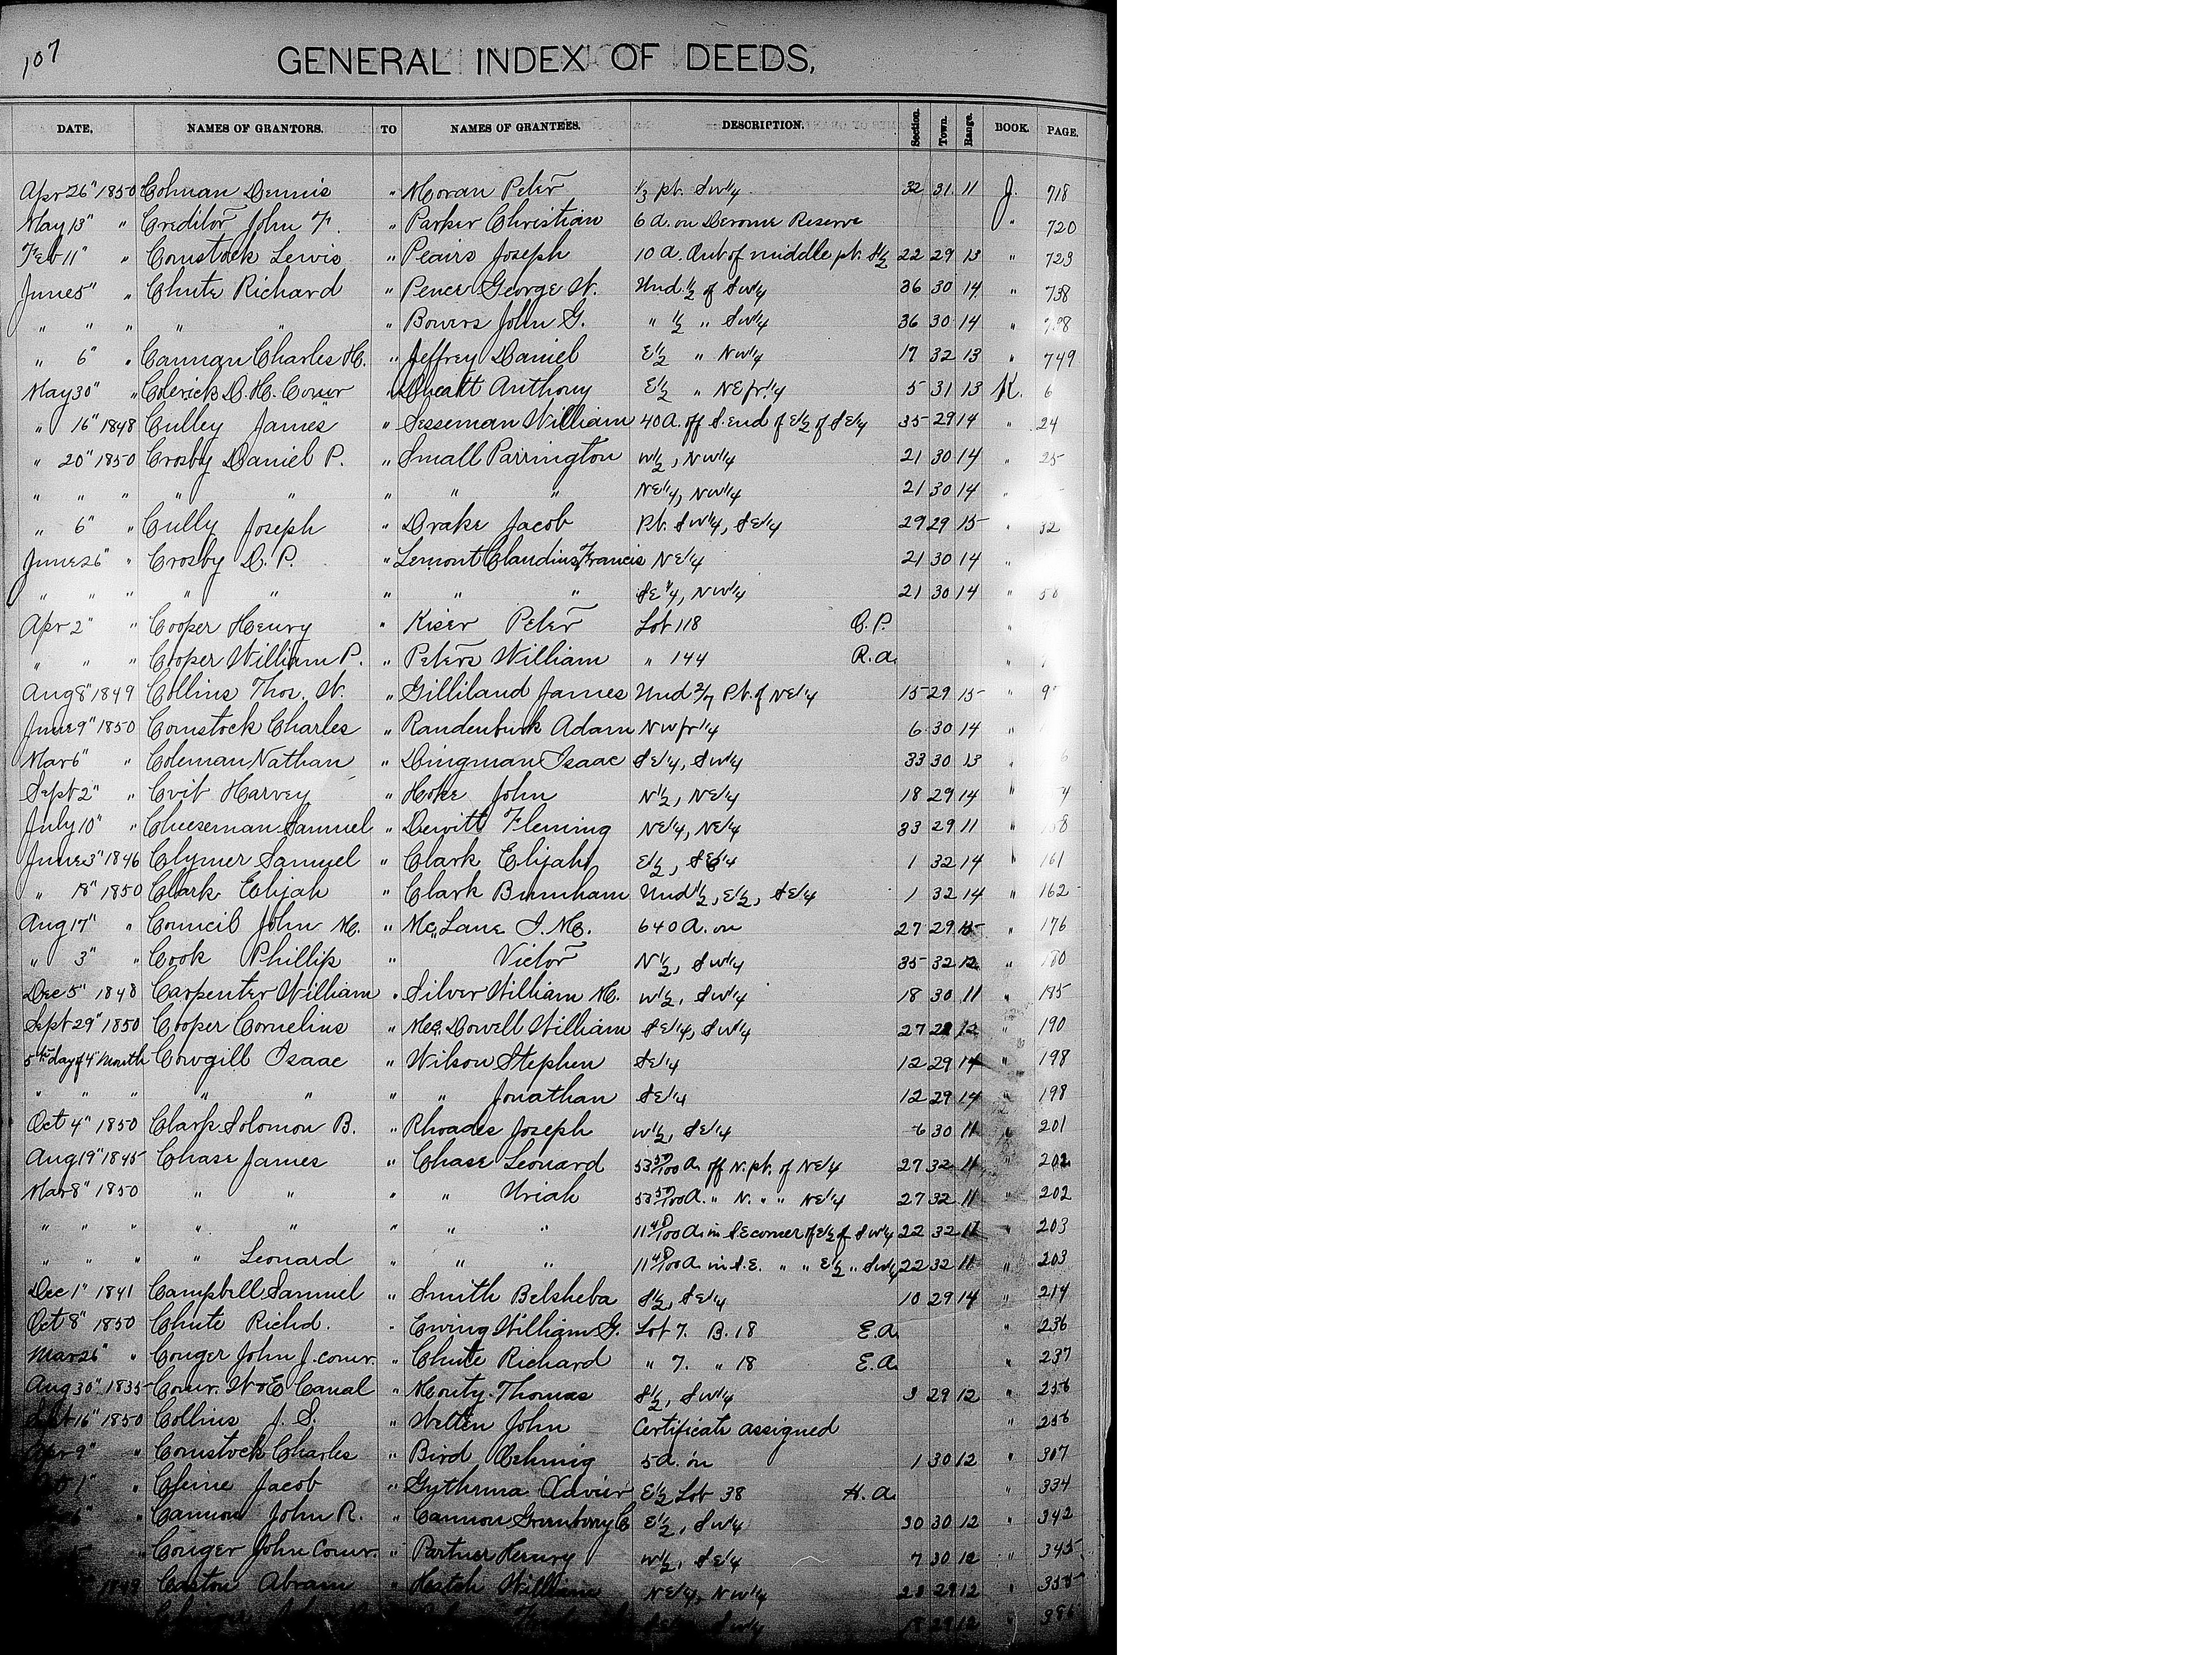 107
GENERAL INDEX OF DEEDS,
DATE, NAMES OF GRANTORS. TO NAMES OF GRANTEES. DESCRIPTION. Section. Town. Range. BOOK. PAGE.
Apr 26" 1850 Colman Dennis " Moran Peter 1/3 pt. SW1/4 32 31 11 J. 718
May 13" " Creditor John F. " Parker Christian 6 A. on Derome Reserve " 720
Feb 11" " Comstock Lewis " Peairs Joseph 10 A. Out of middle pt. S1/2 22 29 13 " 723
June 5" " Chute Richard " Pence George W. Und. 1/2 of SW1/4 36 30 14 " 738
" " " " " " Bowers John G. " 1/2 " SW1/4 36 30 14 "
" 6" " Cannan Charles H. " Jeffrey Daniel E1/2 " NW1/4 17 32 13 " 749
May 30" " Colerick D. H. Comr " Anthony E1/2 " NE fr 1/4 5 31 13 K. 6
" 16" 1848 Culley James " Sesseman William 40 A. off S. end of E1/2 of SE1/4 35 29 14 " 24
" 20" 1850 Crosby Daniel P. " Small Parrington W1/2, NW1/4 21 30 14 " 25
" " " " " " " " NE1/4, NW1/4 21 30 14 "
" 6" " Cully Joseph " Drake Jacob Pt. SW1/4, SE1/4 29 29 15 " 32
June 26" " Crosby D. P. " Lemont Claudius Francis NE1/4 21 30 14 "
" " " " " " " " SE1/4, NW1/4 21 30 14 "
Apr 2" " Cooper Henry " Kiser Peter Lot 118 O.P. "
" " " Cooper William P. " Peters William " 144 R.A. "
Aug 8" 1849 Collins Thos. W. " Gilliland James Und 2/7 Pt. of NE1/4 15 29 15 "
June 9" 1850 Comstock Charles " Randenbush Adam NW fr 1/4 6 30 14 "
Mar 6" " Coleman Nathan " Dingman Isaac SE1/4, SW1/4 33 30 13 "
Sept 2" " Cvit Harvey " Hoke John N1/2, NE1/4 18 29 14 "
July 10" " Cheeseman Samuel " Dewitt Fleming NE1/4, NE1/4 33 29 11 "
June 3" 1846 Clymer Samuel " Clark Elijah E1/2, SE1/4 1 32 14 " 161
" 18" 1850 Clark Elijah " Clark Burnham Und 1/2, E1/2, SE1/4 1 32 14 " 162
Aug 17" " Council John M. " McLane J. M. 640 A. on 27 29 15 " 176
" 3" " Cook Phillip " Victor N1/2, SW1/4 35 32 12 " 180
Dec 5" 1848 Carpenter William " Silver William M. W1/2, SW1/4 18 30 11 " 185
Sept 29" 1850 Cooper Cornelius " McDowell William SE1/4, SW1/4 27 12 " 190
5th day of 4" Month Cowgill Isaac " Wilson Stephen SE1/4 12 29 14 " 198
" " " " " " " Jonathan SE1/4 12 29 14 198
Oct 4" 1850 Clark Solomon B. " Rhoades Joseph W1/2, SE1/4 6 30 11 " 201
Aug 19" 1845 Chase James " Chase Leonard 53 50/100 A. off N. pt. of NE1/4 27 32 11 " 202
Mar 8" 1850 " " " " Uriah 53 50/100 A. " N. " " NE1/4 27 32 11 " 202
" " " " " " " " 11 48/100 A. in SE corner of E1/2 of SW1/4 22 32 11 " 203
" " " " Leonard " " " 11 48/100 A. in S.E. " " E1/2 " SW1/4 22 32 11 " 203
Dec 1" 1841 Campbell Samuel " Smith Belsheba S1/2, SE1/4 10 29 14 " 214
Oct 8" 1850 Chute Richd. " Ewing William G. Lot 7. B. 18 E.A. " 236
Mar 26" " Conger John J. comr. " Chute Richard " 7. " 18 E.A. " 237
Aug 30" 1835 Comr. W & E Canal " Monty Thomas S1/2, SW1/4 3 29 12 " 256
Sept 16" 1850 Collins J. S. " Welten John Certificate assigned " 256
Apr 9" " Comstock Charles " Bird Ochmig 5 A. in 1 30 12 " 307
1" " Cleine Jacob " Guthrma Xavier E1/2 Lot 38 H.A. " 334
6" " Cannon John R. " Cannon Greenberry C E1/2, SW1/4 30 30 12 " 342
" Conger John Comr. " Partner Henry W1/2, SE1/4 7 30 12 " 345
1849 Caston Abram " Hatch William NE1/4, NW1/4 28 29 12 " 355
SW1/4 18 29 12 " 386